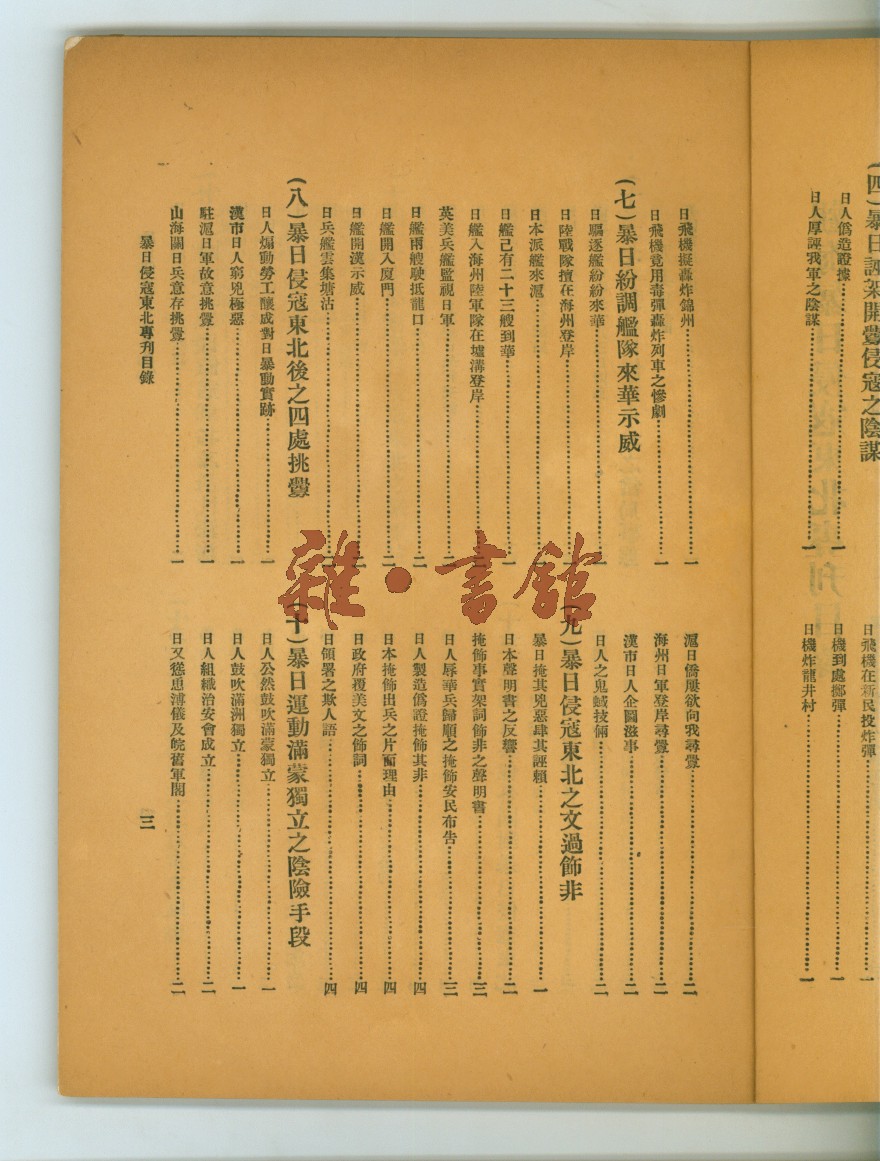 (四)暴日誣架開釁侵寇之陰謀
日人僞造證據……一
日人厚誣我軍之陰謀……一
日飛機在新民投炸彈……一
日機到處擲彈……一
日機炸龍井村……一
日飛機擬轟炸錦州……一
日飛機竟用毒彈轟炸列車之慘劇……一
(七)暴日紛調艦隊來華示威
日驅逐艦紛紛來華……一
日陸戰隊擅在海州登岸……一
日本派艦來滬……一
日艦已有二十三艘到華……一
日艦入海州陸軍隊在墟溝登岸……
英美兵艦監視日軍……二
日艦兩艘駛抵龍口……二
日艦開入厦門……二
日艦開漢示威……二
日兵艦雲集塘沽……二
(八)暴日侵寇東北後之四處挑釁
日人煽動勞工釀成對日暴動實跡……一
漢市日人窮兇極惡……一
駐滬日軍故意挑釁……一
山海關日兵意存挑釁……一
滬日僑屢欲向我尋釁……二
海州日軍登岸尋釁……二
漢市日人企圖滋事……二
日人之鬼蜮技倆……二
(九)暴日侵寇東北之文過飾非
暴日掩其兇惡肆其誣賴……一
日本聲明書之反響……二
掩飾事實架詞飾非之聲明書……三
日人辱華兵歸順之掩飾安民布告……三
日人製造僞證掩飾其非……四
日本掩飾出兵之片面理由……四
日政府覆美文之飾詞……四
日領署之欺人語……四
(十)暴日運動滿蒙獨立之陰險手段
日人公然鼓吹滿蒙獨立……一
日人鼓吹滿洲獨立……一
日人組織治安會成立……二
日又慫恿溥儀及皖舊軍閥……二
暴日侵寇東北專刊目錄
三
雜·書館